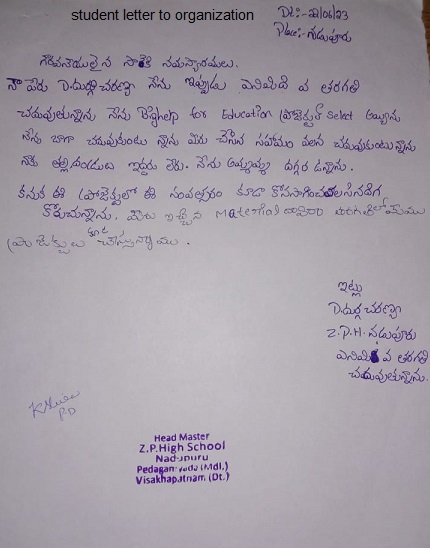 student letter to organization
Dt:- 22/06/23
Place:- నడుపూరు
గౌరవనీయులైన సార్ కి నమస్కారములు.
నా పేరు D.దుర్గ చరణ్యా నేను ఇప్పుడు ఎనిమిది వ తరగతి
చదువుతున్నాను నేను Bighelp for Education ప్రాజెక్టుకి select అయ్యాను
నేను బాగా చదువుకుంటు న్నాను మీరు చేసిన సహాయం వలన చదువుకుంటున్నాను
నాకు తల్లిదండ్రులు ఇద్దరు లేరు. నేను అమ్మమ్మ దగ్గర ఉన్నాను.
కనుక ఈ ప్రాజెక్టులో ఈ సంవత్సరం కూడా కొనసాగించవలసినదిగా
కోరుచున్నాను. మీరు ఇచ్చిన Material
ప్రాజెక్టులు కూడ చేస్తున్నాము.
ఇట్లు
D.దుర్గ చరణ్యా
Z.P.H. నడుపూరు
ఎనిమిది వ తరగతి
చదువుతున్నాను.
P.D
Head Master
Z.P.High School
Nadupuru
Pedagantyada (Mdl.)
Visakhapatnam (Dt.)